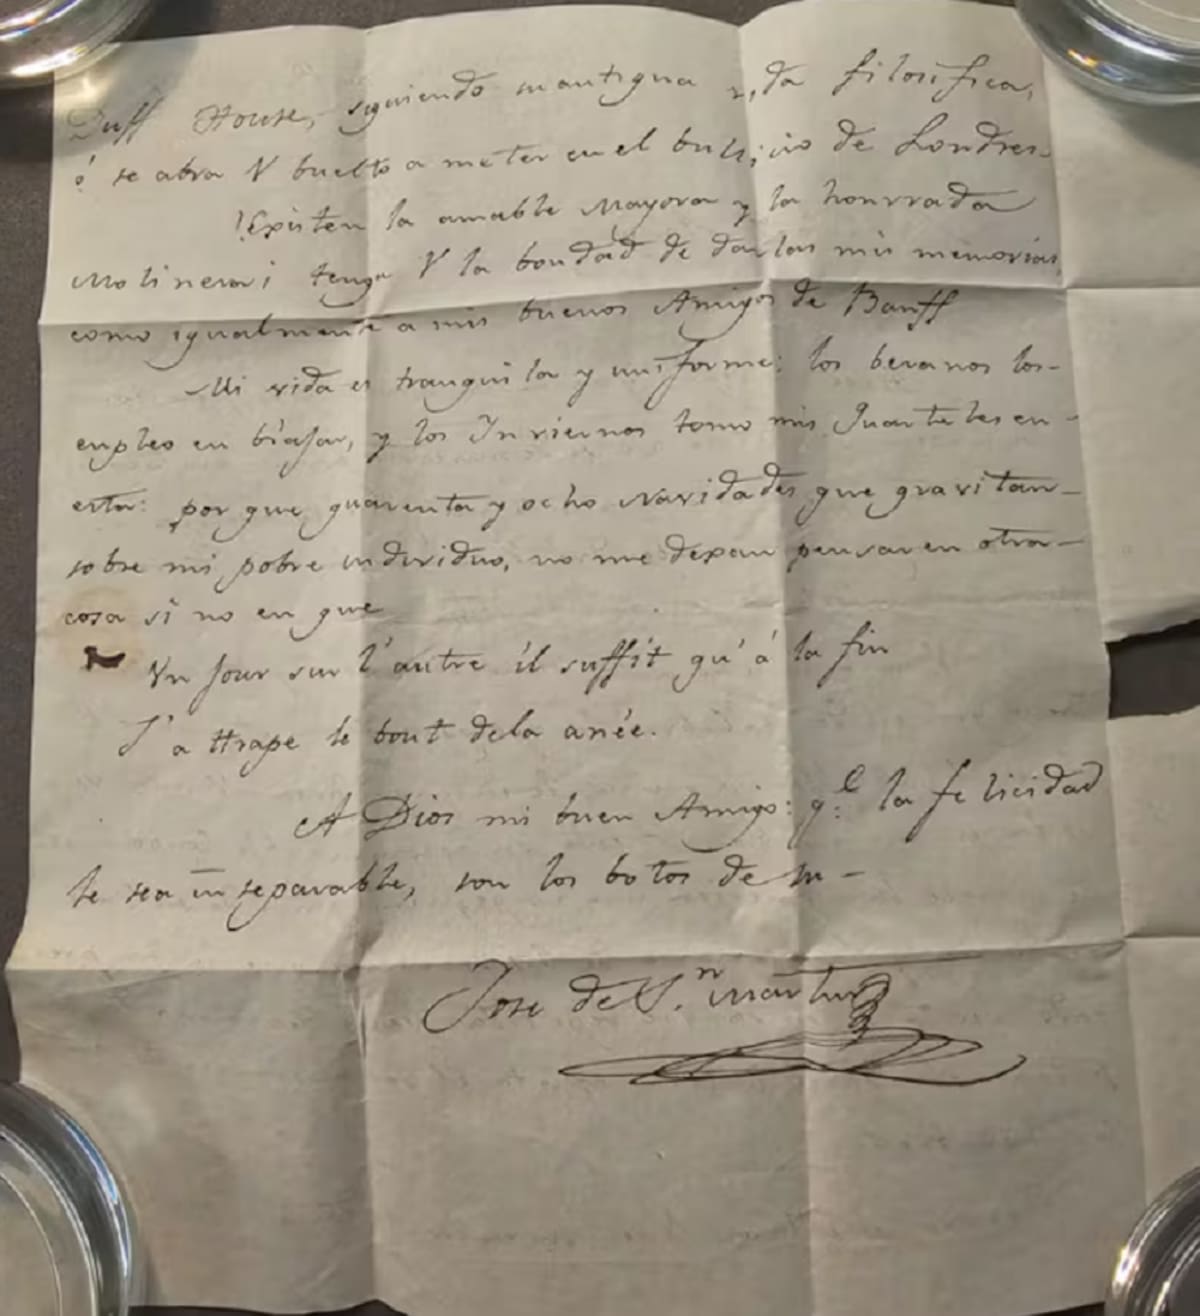 Duff House, siguiendo su antigua vida filosifica,
ó se abra V buelto a meter en el bullicio de Londres.
¡Existen la amable Mayora y la honrrada
Molinera¡ tenga V la bondad de darlas mis memorias,
como igualmente a mis buenos Amigos de Banff
Mi vida es tranquila y uniforme: los beranos los-
enpleo en biajar, y los Inviernos tomo mis Quarteles en-
esta: por que quarenta y ocho Navidades que gravitan-
sobre mi pobre individuo, no me dexan pensar en otra-
cosa si no en que
Un Jour sur l'autre il suffit qu'á la fin
J'attrape le bout dela anée.
A Dios mi buen Amigo: q.e la felicidad
le sea inseparable, son los botos de su-
Jose de S.n Martin